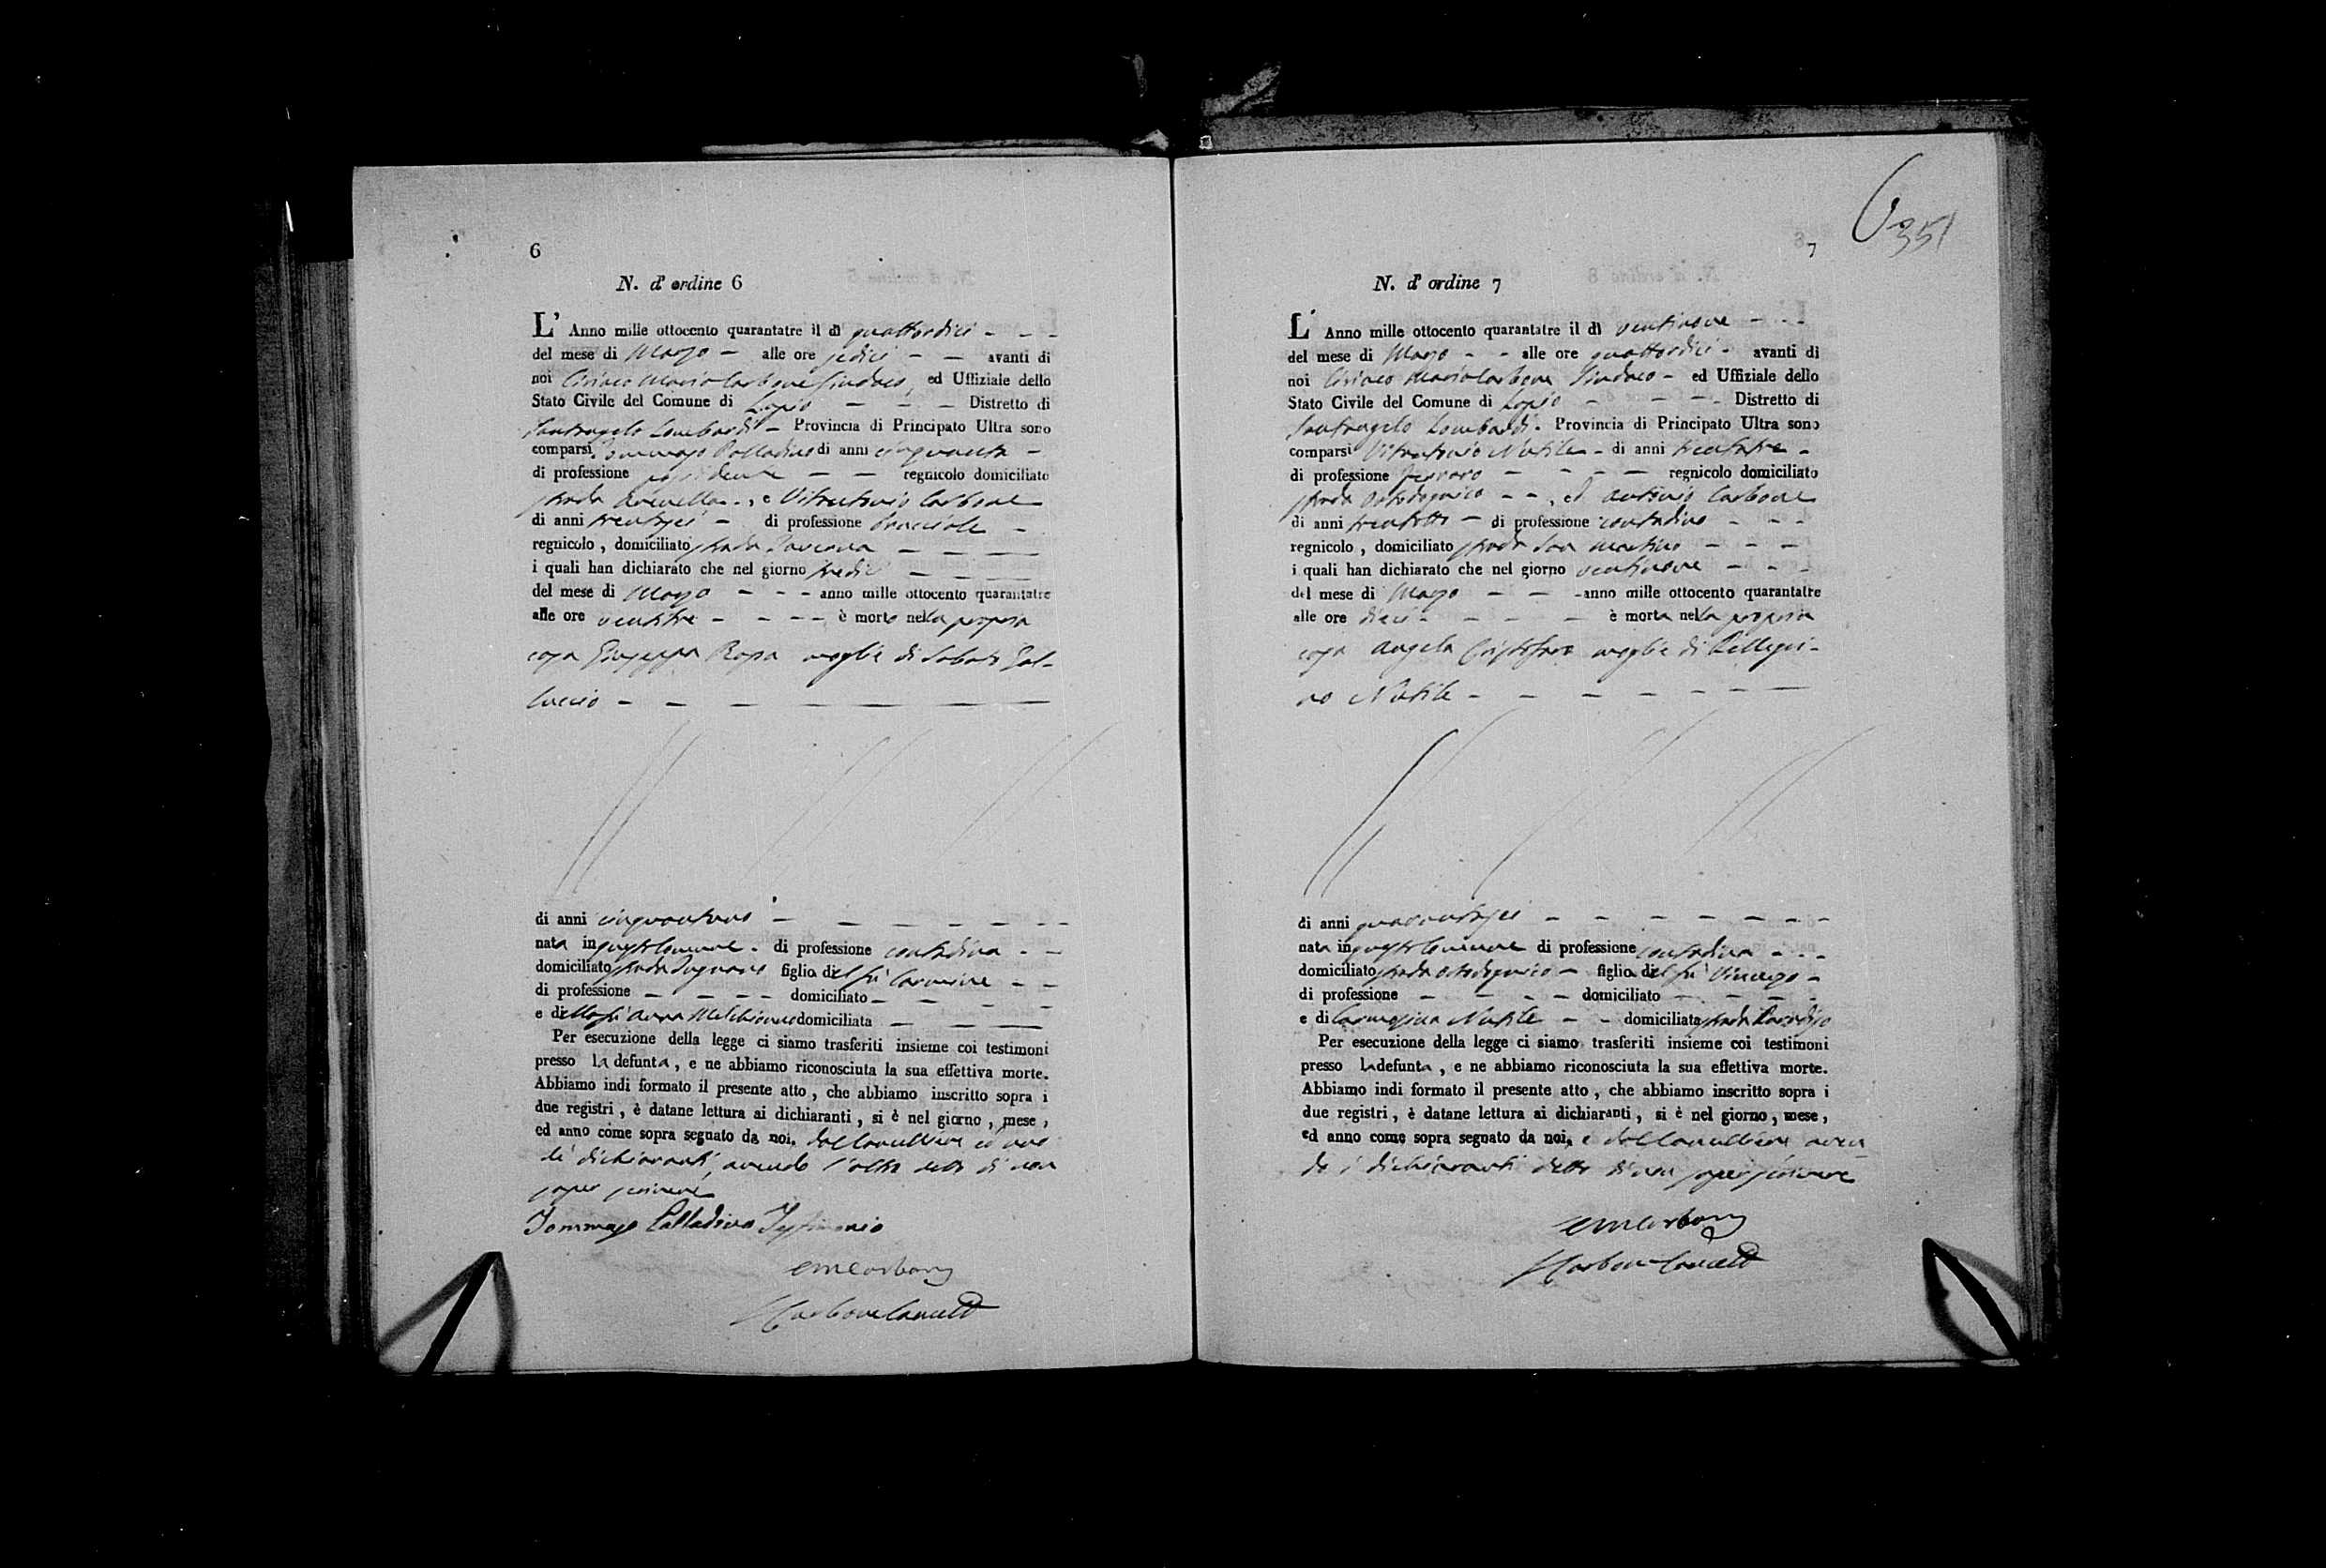 6
N. d' ordine 6
L' Anno mille ottocento quarantatre il dì quattordici - - -
del mese di Marzo - alle ore sedici - - avanti di
noi Ciriaco Maria Carbone Sindaco, ed Uffiziale dello
Stato Civile del Comune di Lapio - - - Distretto di
Santangelo Lombardi - Provincia di Principato Ultra sono
comparsi Tommaso Palladino di anni cinquanta -
di professione possidente - - regnicolo domiciliato
strada - , e Vitantonio Carbone
di anni trentasei - di professione -
regnicolo, domiciliato strada Taverna - - -
i quali han dichiarato che nel giorno tredici - - - -
del mese di Marzo - - - anno mille ottocento quarantatre
alle ore ventitre - - - - è morta nella propria
casa Giuseppa Rosa moglie di Sabato Gal-
luccio - - - - - - -
di anni cinquantuno - - - - - - -
nata in questo Comune - di professione contadina - -
domiciliato strada figlia del fù Carmine - -
di professione - - - - domiciliato - - - -
e della fù Anna Melchionno domiciliata - - -
Per esecuzione della legge ci siamo trasferiti insieme coi testimoni
presso la defunta, e ne abbiamo riconosciuta la sua effettiva morte.
Abbiamo indi formato il presente atto, che abbiamo inscritto sopra i
due registri, è datane lettura ai dichiaranti, si è nel giorno, mese,
ed anno come sopra segnato da noi, dal Cancelliere ed uno
de' dichiaranti, avendo l'altro detto di non
saper scrivere
Tommaso Palladino Testimonio
CMCarbone
Carbone Cancell
6
351
7
N. d' ordine 7
L' Anno mille ottocento quarantatre il dì ventinove - - -
del mese di Marzo - - alle ore quattordici - avanti di
noi Ciriaco Maria Carbone Sindaco - ed Uffiziale dello
Stato Civile del Comune di Lapio - - - - Distretto di
Santangelo Lombardi - Provincia di Principato Ultra sono
comparsi Vitantonio Nutile - di anni trentatre -
di professione ferraro - - - - regnicolo domiciliato
strada - - , ed Antonio Carbone
di anni trentotto - di professione contadino - - -
regnicolo, domiciliato strada San Martino - - -
i quali han dichiarato che nel giorno ventinove - - -
del mese di Marzo - - - anno mille ottocento quarantatre
alle ore dieci - - - - è morta nella propria
casa Angela Cristofaro moglie di Pellegri-
no Nutile - - - - - - -
di anni quarantasei - - - - - - -
nata in questo Comune di professione contadina - - -
domiciliato strada - figlia del fù Vincenzo -
di professione - - - - domiciliato - - - -
e di Carmosina Nutile - - domiciliata strada Paradiso
Per esecuzione della legge ci siamo trasferiti insieme coi testimoni
presso la defunta, e ne abbiamo riconosciuta la sua effettiva morte.
Abbiamo indi formato il presente atto, che abbiamo inscritto sopra i
due registri, è datane lettura ai dichiaranti, si è nel giorno, mese,
ed anno come sopra segnato da noi, e dal Cancelliere aven-
do i dichiaranti detto di non saper scrivere
CMCarbone
Carbone Cancell